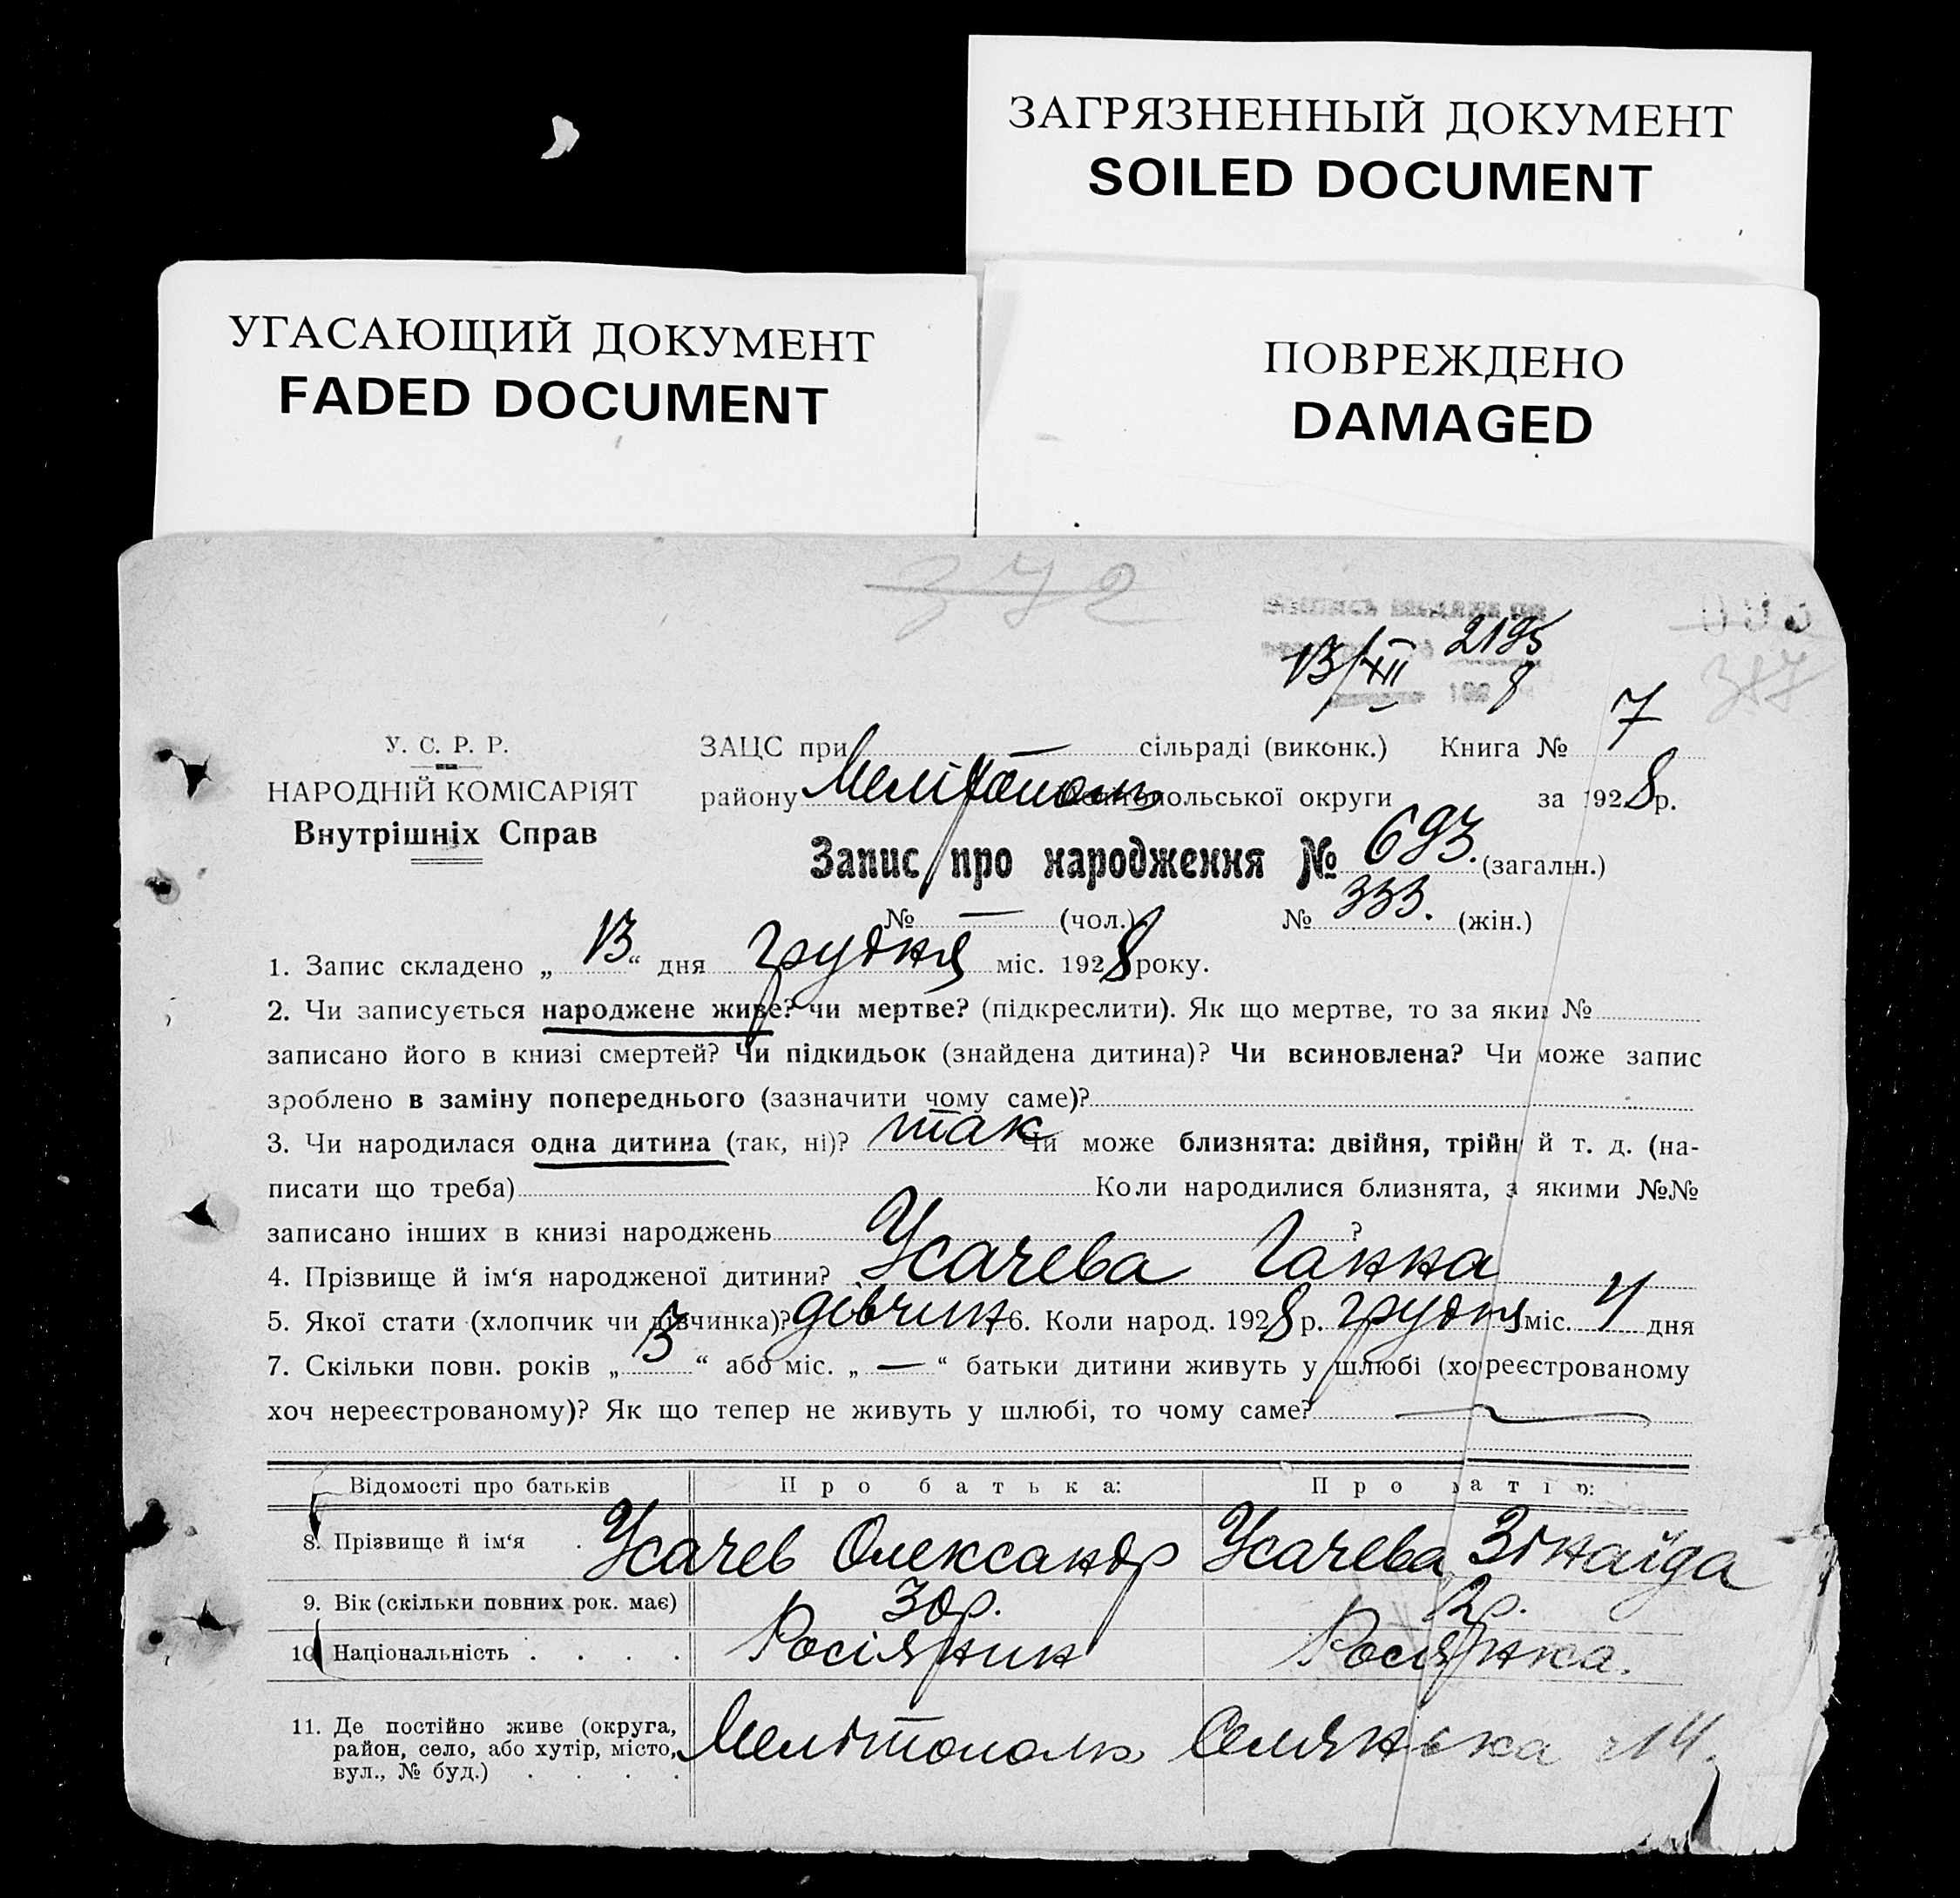 ЗАГРЯЗНЕННЫЙ ДОКУМЕНТ
SOILED DOCUMENT
УГАСАЮЩИЙ ДОКУМЕНТ
FADED DOCUMENT
ПОВРЕЖДЕНО
DAMAGED
372
13/XII 2195
8
317
У. С. Р. Р.
НАРОДНІЙ КОМІСАРІЯТ
Внутрішніх Справ
ЗАЦС при — сільраді (виконк.) Книга № 7
району Мелітополь польської округи за 1928 р.
Запис про народження № 693. (загальн.)
№ — (чол.) № 333. (жін.)
1. Запис складено „ 13 “ дня грудня міс. 1928 року.
2. Чи записується народжене живе? чи мертве? (підкреслити). Як що мертве, то за яким №
записано його в книзі смертей? Чи підкидьок (знайдена дитина)? Чи всиновлена? Чи може запис
зроблено в заміну попереднього (зазначити чому саме)?
3. Чи народилася одна дитина (так, ні)? так Чи може близнята: двійня, трійн й т. д. (на-
писати що треба) Коли народилися близнята, з якими №№
записано інших в книзі народжень ?
4. Прізвище й ім‘я народженої дитини? Усачева Ганна
5. Якої стати (хлопчик чи дівчинка)? дівчин 6. Коли народ. 1928 р. грудня міс. 4 дня
7. Скільки повн. років „ “ або міс. „ — “ батьки дитини живуть у шлюбі (хоч реєстрованому
хоч нереєстрованому)? Як що тепер не живуть у шлюбі, то чому саме? —
Відомості про батьків Про батька: Про матір:
8. Прізвище й ім‘я Усачев Олександр Усачева Зінаїда
9. Вік (скільки повних рок. має) 30р.
10 Національність . . . . Росіянин Росіянка.
11. Де постійно живе (округа,
район, село, або хутір, місто,
вул., № буд.) . . . . Мелітополь 14.